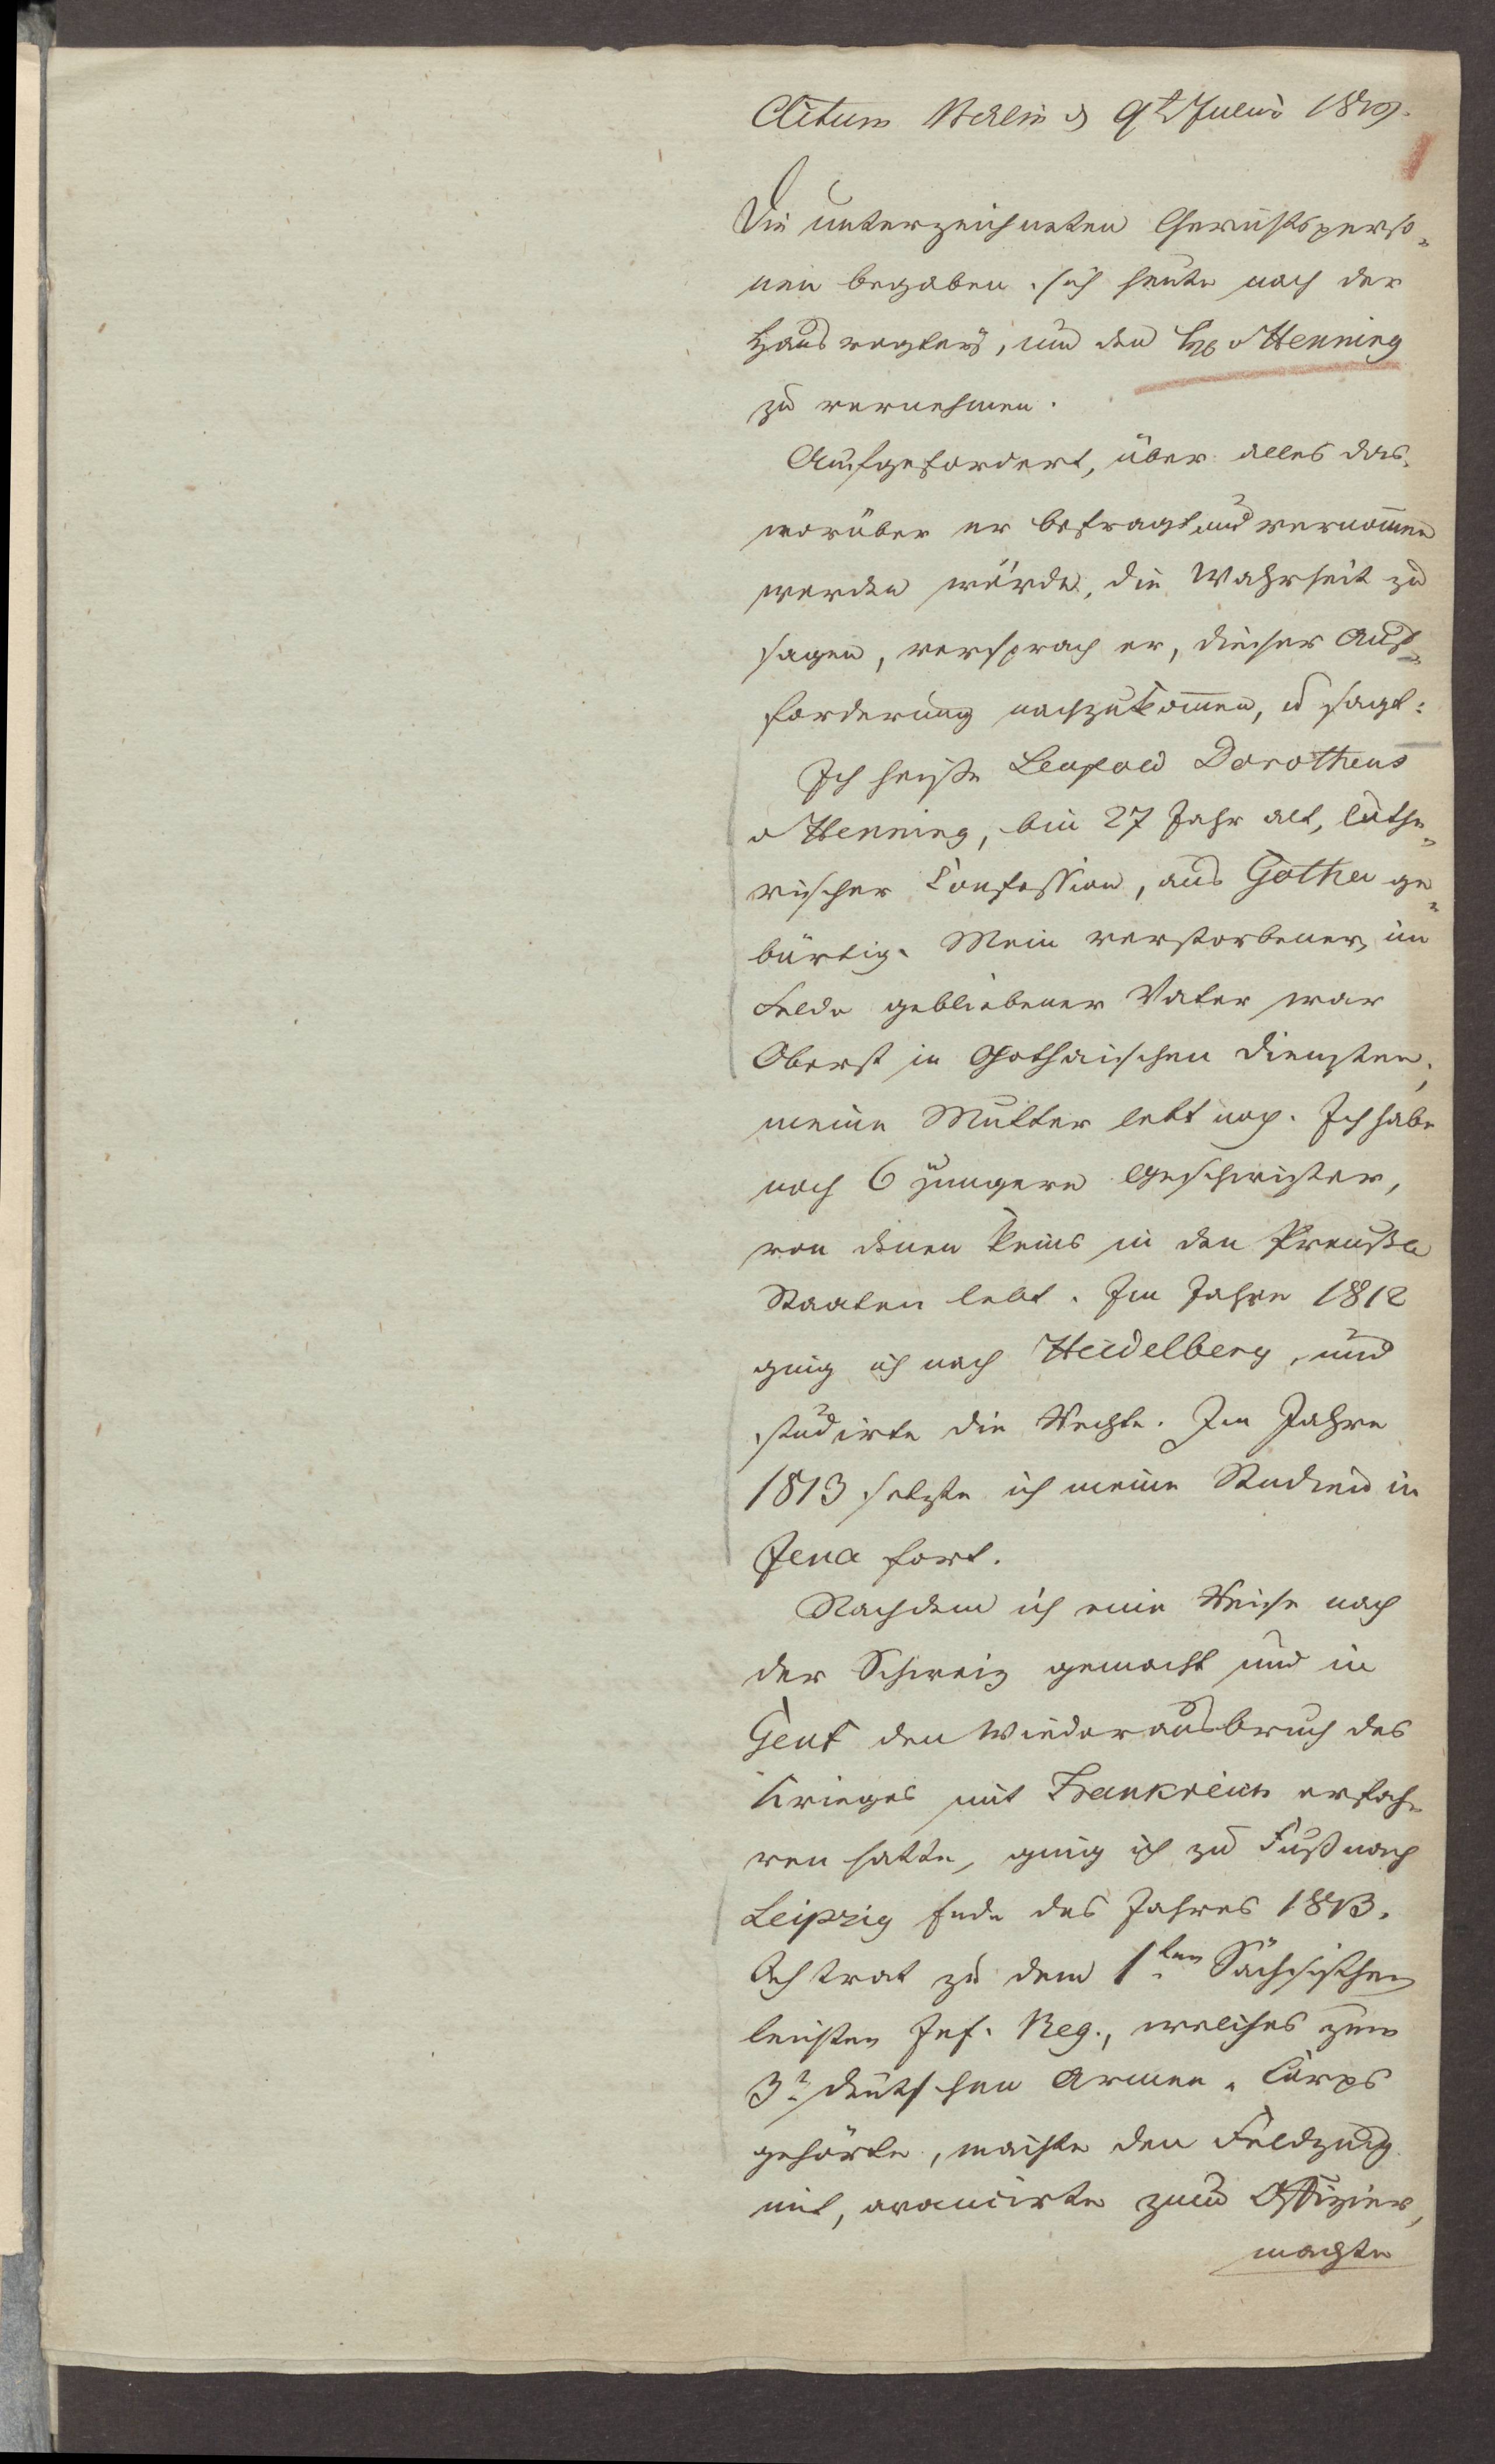 Actum Berlin d 9t Julius 1819.
Die unterzeichneten Gerichtsperso-
nen begaben sich heute nach der
Hausvogtey, um den v Henning
zu vernehmen.
Aufgefordert, über alles das,
worüber er befragt und vernom̅en
werden würde, die Wahrheit zu
sagen, versprach er, dieser Auf-
forderung nachzukom̅en, u sagt:
Ich heiße Leopold Dorotheus
v Henning, bin 27 Jahr alt, luthe-
rischer Confession, aus Gotha ge-
bürtig. Mein verstorbener, im
Felde gebliebener Vater war
Oberst in Gothaischen Diensten;
meine Mutter lebt noch. Ich habe
noch 6 jüngere Geschwister,
von denen keins in den Preuß
Staaten lebt. Im Jahre 1812
ging ich nach Heidelberg, und
studirte die Rechte. Im Jahre
1813 setzte ich meine Studien in
Jena fort.
Nachdem ich eine Reise nach
der Schweiz gemacht und in
Genf den Wiederausbruch des
Krieges mit Frankreich erfah-
ren hatte, ging ich zu Fuß nach
Leipzig Ende des Jahres 1813.
Ich trat zu dem 1ten Sächsischen
leichten Inf. Reg., welches zum
3t deutschen Armee-Corps
gehörte, machte den Feldzug
mit, avancirte zum Offizier,
machte